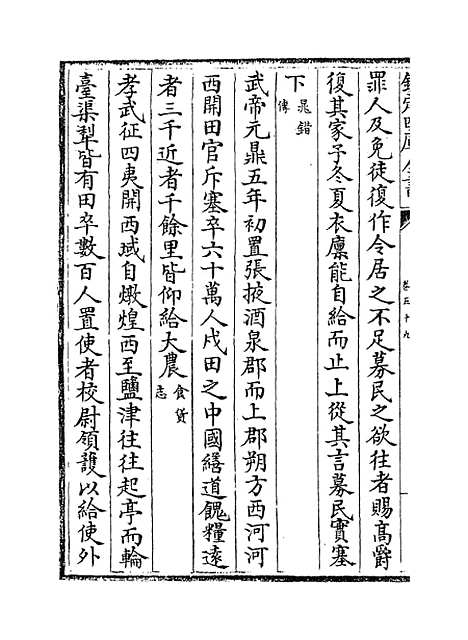 欽定四庫全書
卷五十九
罪人及免徒復作令居之不足募民之欲往者賜高爵
復其家子冬夏衣廩能自給而止上從其言募民實塞
下晁錯傳
武帝元鼎五年初置張掖酒泉郡而上郡朔方西河河
西開田官斥塞卒六十萬人戍田之中國繕道餽糧遠
者三千近者千餘里皆仰給大農食貨志
孝武征四夷開西域自燉煌西至鹽津往往起亭而輪
臺渠犂皆有田卒數百人置使者校尉領護以給使外